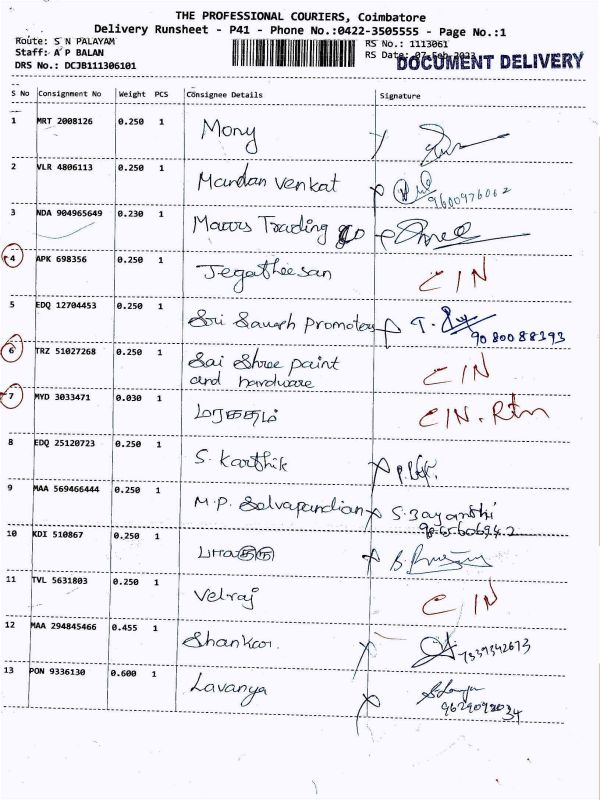 THE PROFESSIONAL COURIERS, Coimbatore
Delivery Runsheet - P41 - Phone No.:0422-3505555 - Page No.:1
Route: S N PALAYAM
RS No.: 1113061
Staff: A P BALAN
RS Date: 07-Feb-2023
DOCUMENT DELIVERY
DRS No.: DCJB111306101
S No Consignment No Weight PCS Consignee Details Signature
1 MRT 2008126 0.250 1 Mony
2 VLR 4806113 0.250 1 Mardan Venkat 9600976062
3 NDA 904965649 0.230 1 Trading
4 APK 698356 0.250 1 Jegatheesan CIN
5 EDQ 12704453 0.250 1 Sri promoters 9080088193
6 TRZ 51027268 0.250 1 Sai Shree paint and hardware CIN
7 MYD 3033471 0.030 1 மரகதம் CIN. Rtn
8 EDQ 25120723 0.250 1 S. Karthik
9 MAA 569466444 0.250 1 M.P. Selvapandian S. Jayanthi
10 KDI 510867 0.250 1
11 TVL 5631803 0.250 1 Velraj CIN
12 MAA 294845466 0.455 1 Shankar. 7339342673
13 PON 9336130 0.600 1 Lavanya 9629092034